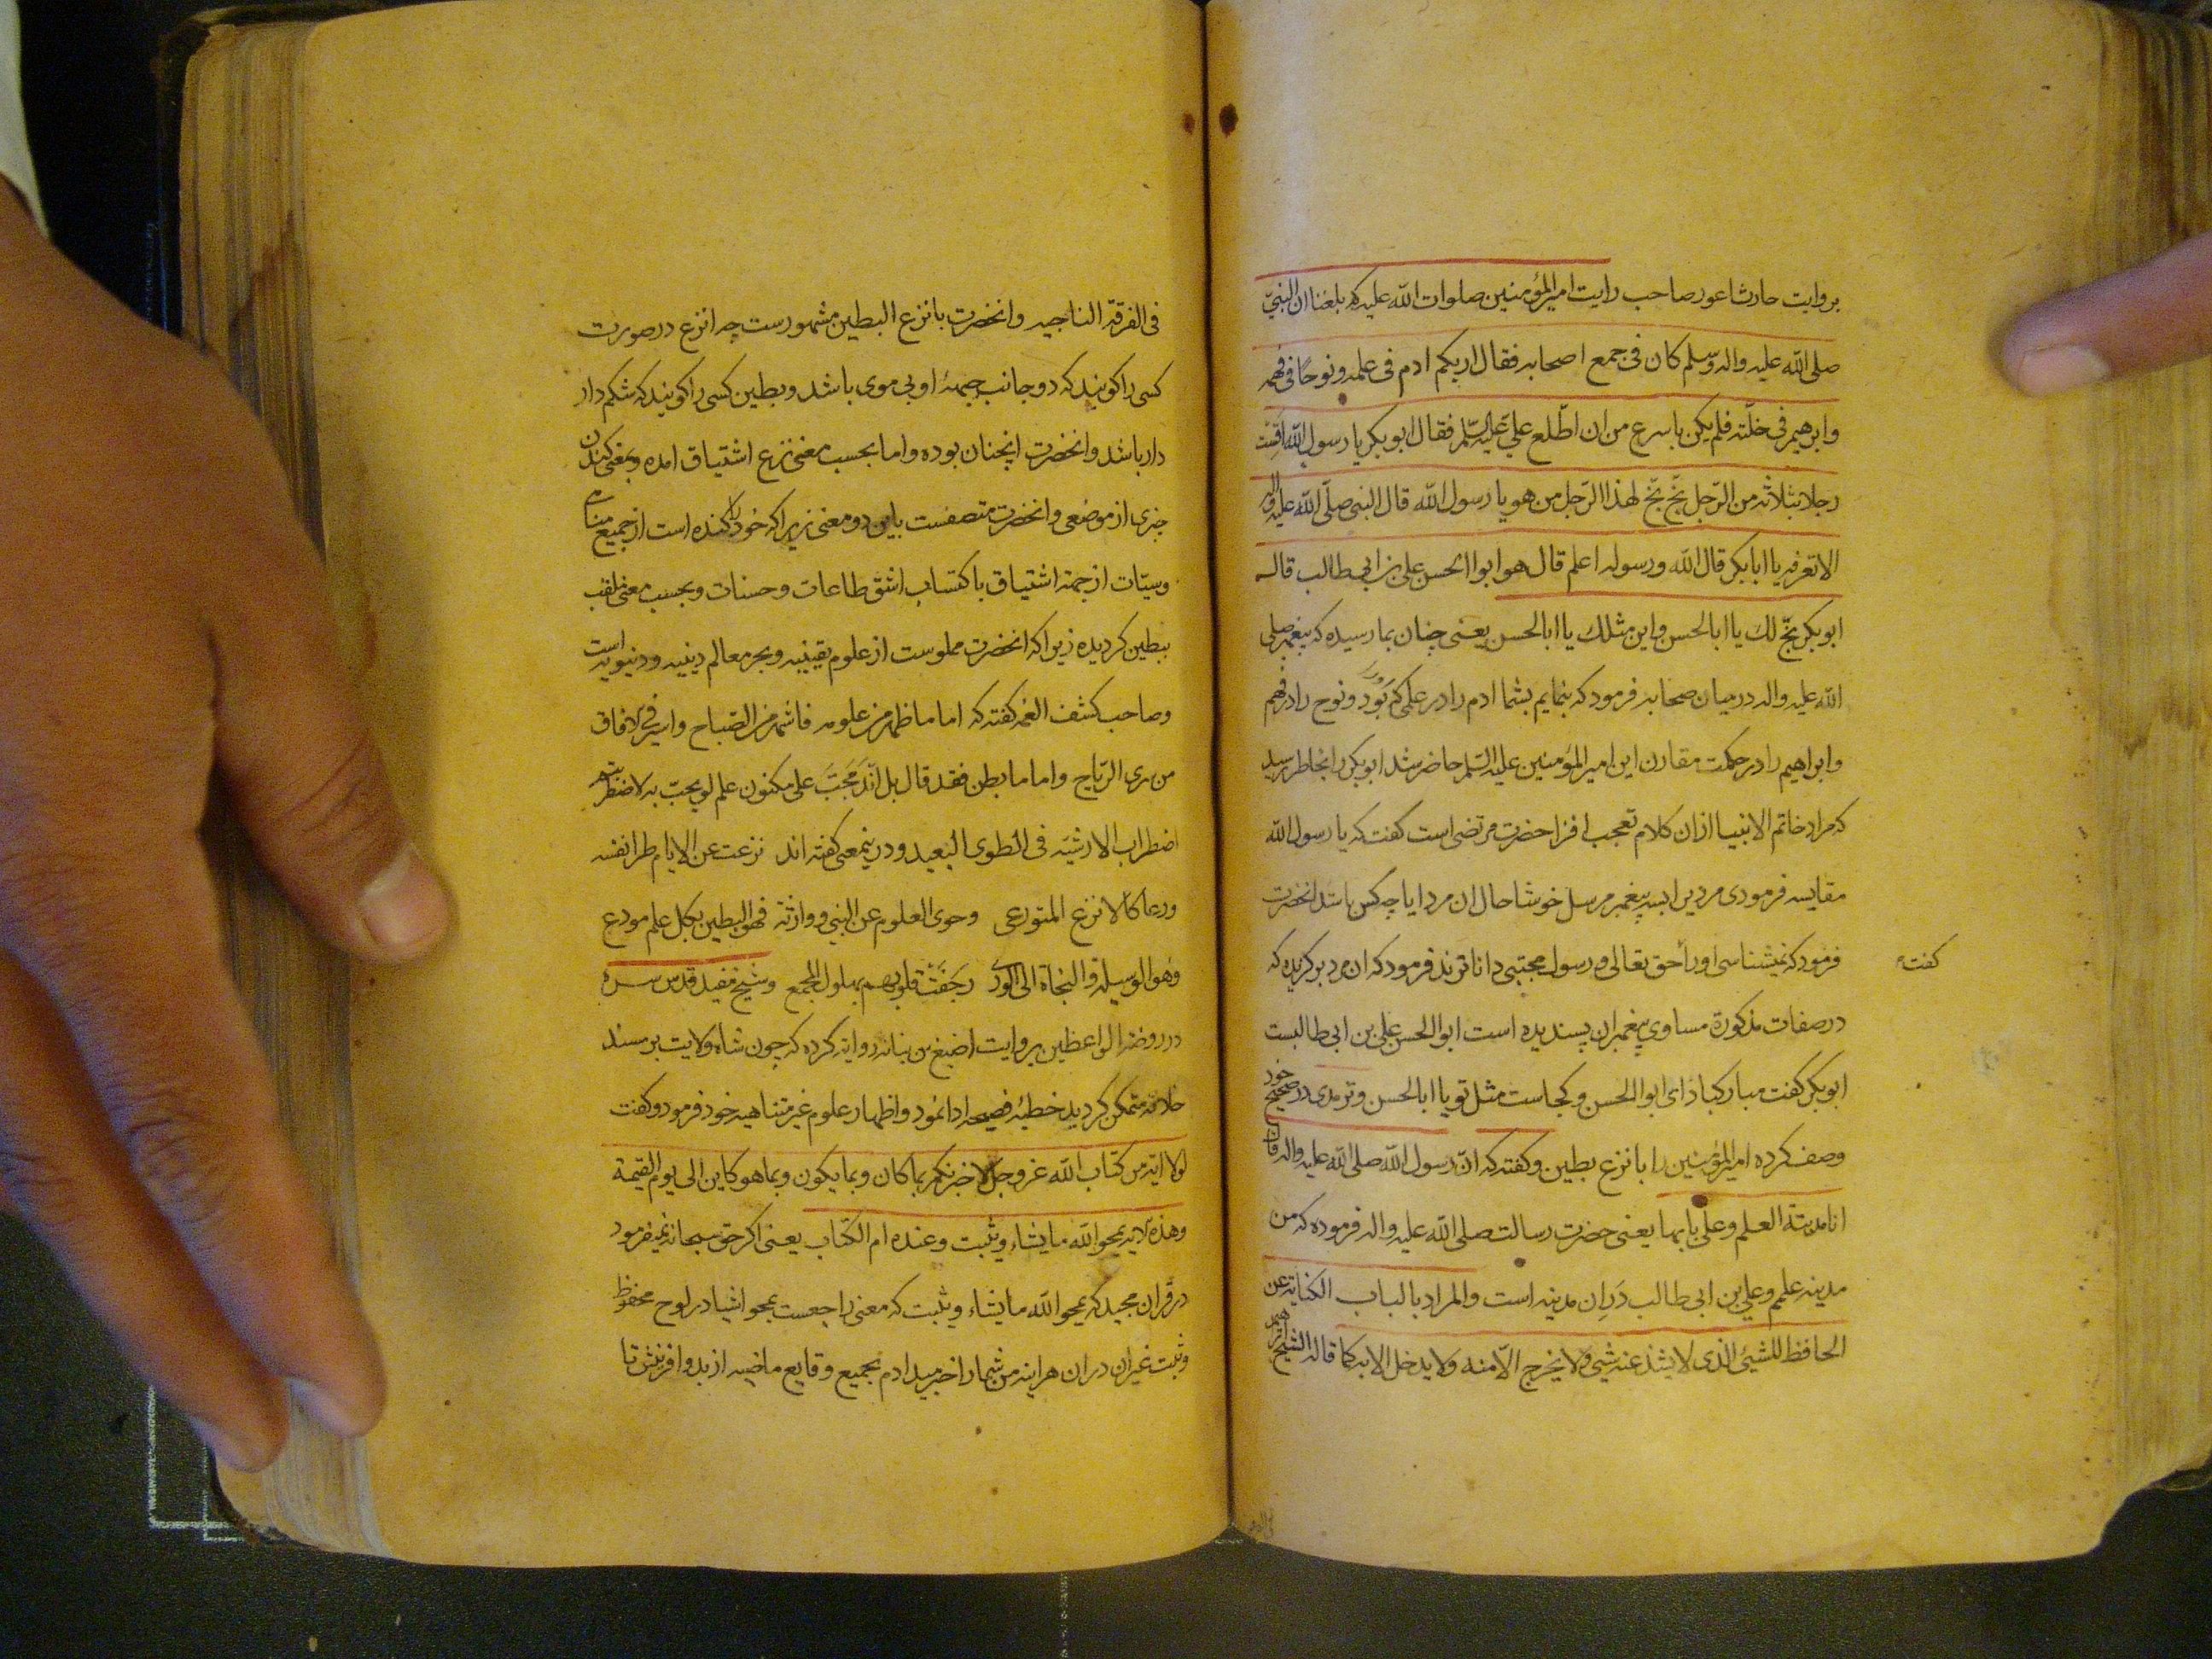 بروایت حارث اعور صاحب رایت امیرالمؤمنین صلوات الله علیه که بلغنا ان النبیّ
صلی الله علیه واله وسلم کان فی جمع اصحابه فقال اریکم ادم فی علمه ونوحًا فی فهمه
وابرهیم فی خلّته فلم یکن باسرع من ان اطّلع علیّ علیه السّلم فقال ابو بکر یا رسول الله اقست
رجلا بثلاثه من الرّجل بخّ بخّ لهذا الرّجل من هو یا رسول الله قال النبی صلّی الله علیه واله
الا تعرفه یا ابا بکر قال الله ورسوله اعلم قال هو ابوا الحسن علی بن ابی طالب قال
ابو بکر بخّ لک یا ابا الحسن واین مثلک یا ابا الحسن یعنی چنان بما رسیده که پیغمبر صلی
الله علیه واله در میان صحابه فرمود که بنمایم بشما ادم را در علمی که بَوَد ونوح را در فهم
وابراهیم را در حکمت مقارن این امیرالمؤمنین علیه السّلم حاضر شد ابوبکر را بخاطر رسید
که مراد خاتم الانبیا ازان کلام تعجب افزا حضرت مرتضی است کفت که یا رسول الله
مقایسه فرمودی مردیرا بسه پیغمبر مرسل خوشا حال ان مرد ایا چه کس باشد انحضرت
فرمود که نمیشناسی او را حق تعالی ورسول مجتبی داناترند فرمود که ان مرد برکزیده که
کفت
در صفات مذکورة مساوی پیغمبران پسندیده است ابوالحسن علی بن ابی طالبست
ابوبکر کفت مبارکباد ای ابو الحسن وکجاست مثل تو یا ابا الحسن وترمدی در صحیح خود
وصف کرده امیرالمؤمنین را بانزع بطین وکفته که انّ رسول الله صلی الله علیه واله قال
انا مدینة العلم وعلی بابها یعنی حضرت رسالت صلی الله علیه واله فرموده که من
مدینه علمم وعلی بن ابی طالب دَرِ ان مدینه است والمراد بالباب الکنایة عن
الحافظ للشیئ الذی لا یشذ عنه شیئ ولا یخرج الّا منه ولا یدخل الا به کما قاله الشیخ
فی الفرقة الناجیه وانحضرت بانزع البطین مشهورست چه انزع در صورت
کسی را کویند که دو جانب جبههٔ او بی موی باشد وبطین کسی را کویند که شکم دار
دار باشد وانحضرت اینچنان بوده واما بحسب معنی نزع اشتیاق امده وبمعنی کندن
چیزی از موضعی وانحضرت متصفست باین دو معنی زیرا که خود را کنده است از جمیع مناهی
وسیّئات از جهة اشتیاق باکتساب اشقّ طاعات وحسنات وبحسب معنی ملقب
ببطین کردیده زیرا که انحضرت مملوست از علوم یقینیه وبحر معالم دینیه ودنیویه است
وصاحب کشف الغمه کفته که اما ما ظهر من علومه فاشهر من الصّباح واسیر فی الافاق
من سری الرّیاح واما ما بطن فقد قال بل اندمجتُ علی مکنون علم لو بحتُ به لاضطربتم
اضطراب الارشیَه فی الطوی البعید ودرینمعنی کفته اند نزعت عن الاثام طرا نفسه
ورعا کالانزع المتورعی وحوی العلوم عن النبی ووراثة فهو البطین بکل علم مودع
وهو الوسیلة والنجاة الی الوری رجَفَتْ قلوبهم بهلول المجمع وشیخ مفید قدّس سرّه
در روضة الواعظین بروایت اصبغ بن نباته روایة کرده که چون شاه ولایت بر مسند
خلافة متمکن کردید خطبهٔ فصیحه ادا نمود واظهار علوم غیر متناهیه خود فرمود وکفت
لولا ایة من کتاب الله عزوجل لاخبرتکم بما کان وبما یکون وبما هو کاین الی یوم القیمة
وهذه الایه یمحوا الله ما یشاء ویثبت وعنده ام الکتاب یعنی اکر حق سبحانه نمیفرمود
در قران مجید که یمحوا الله ما یشاء ویثبت که معنی راجعست بمحو اشیا در لوح محفوظ
وثبت غیر ان دران هراینه من شما را خبر میدادم بجمیع وقایع ماضیه از بدو افرینش تا